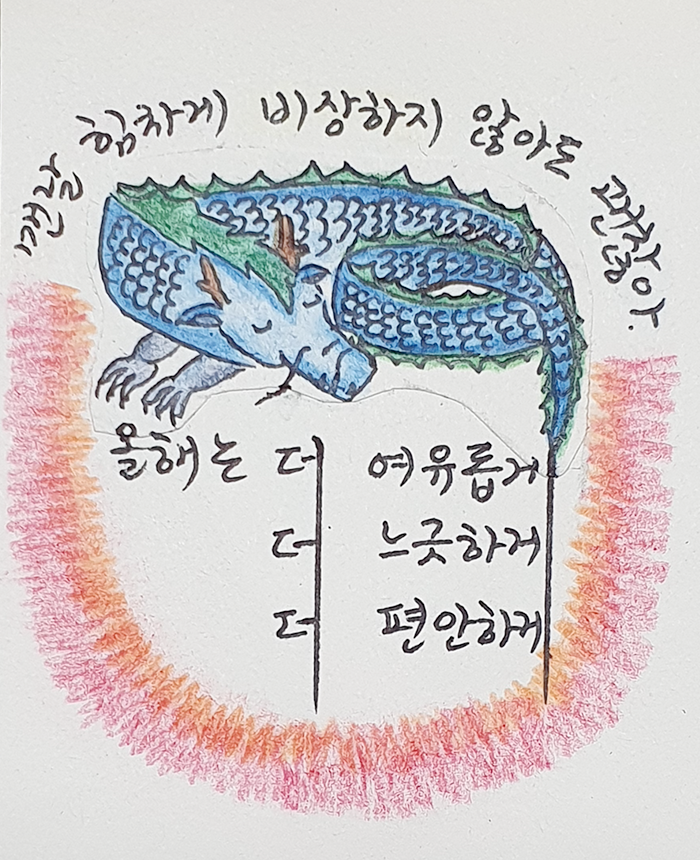 맨날 힘차게 비상하지 않아도 괜찮아.
올해는 더 여유롭게
더 느긋하게
더 편안하게